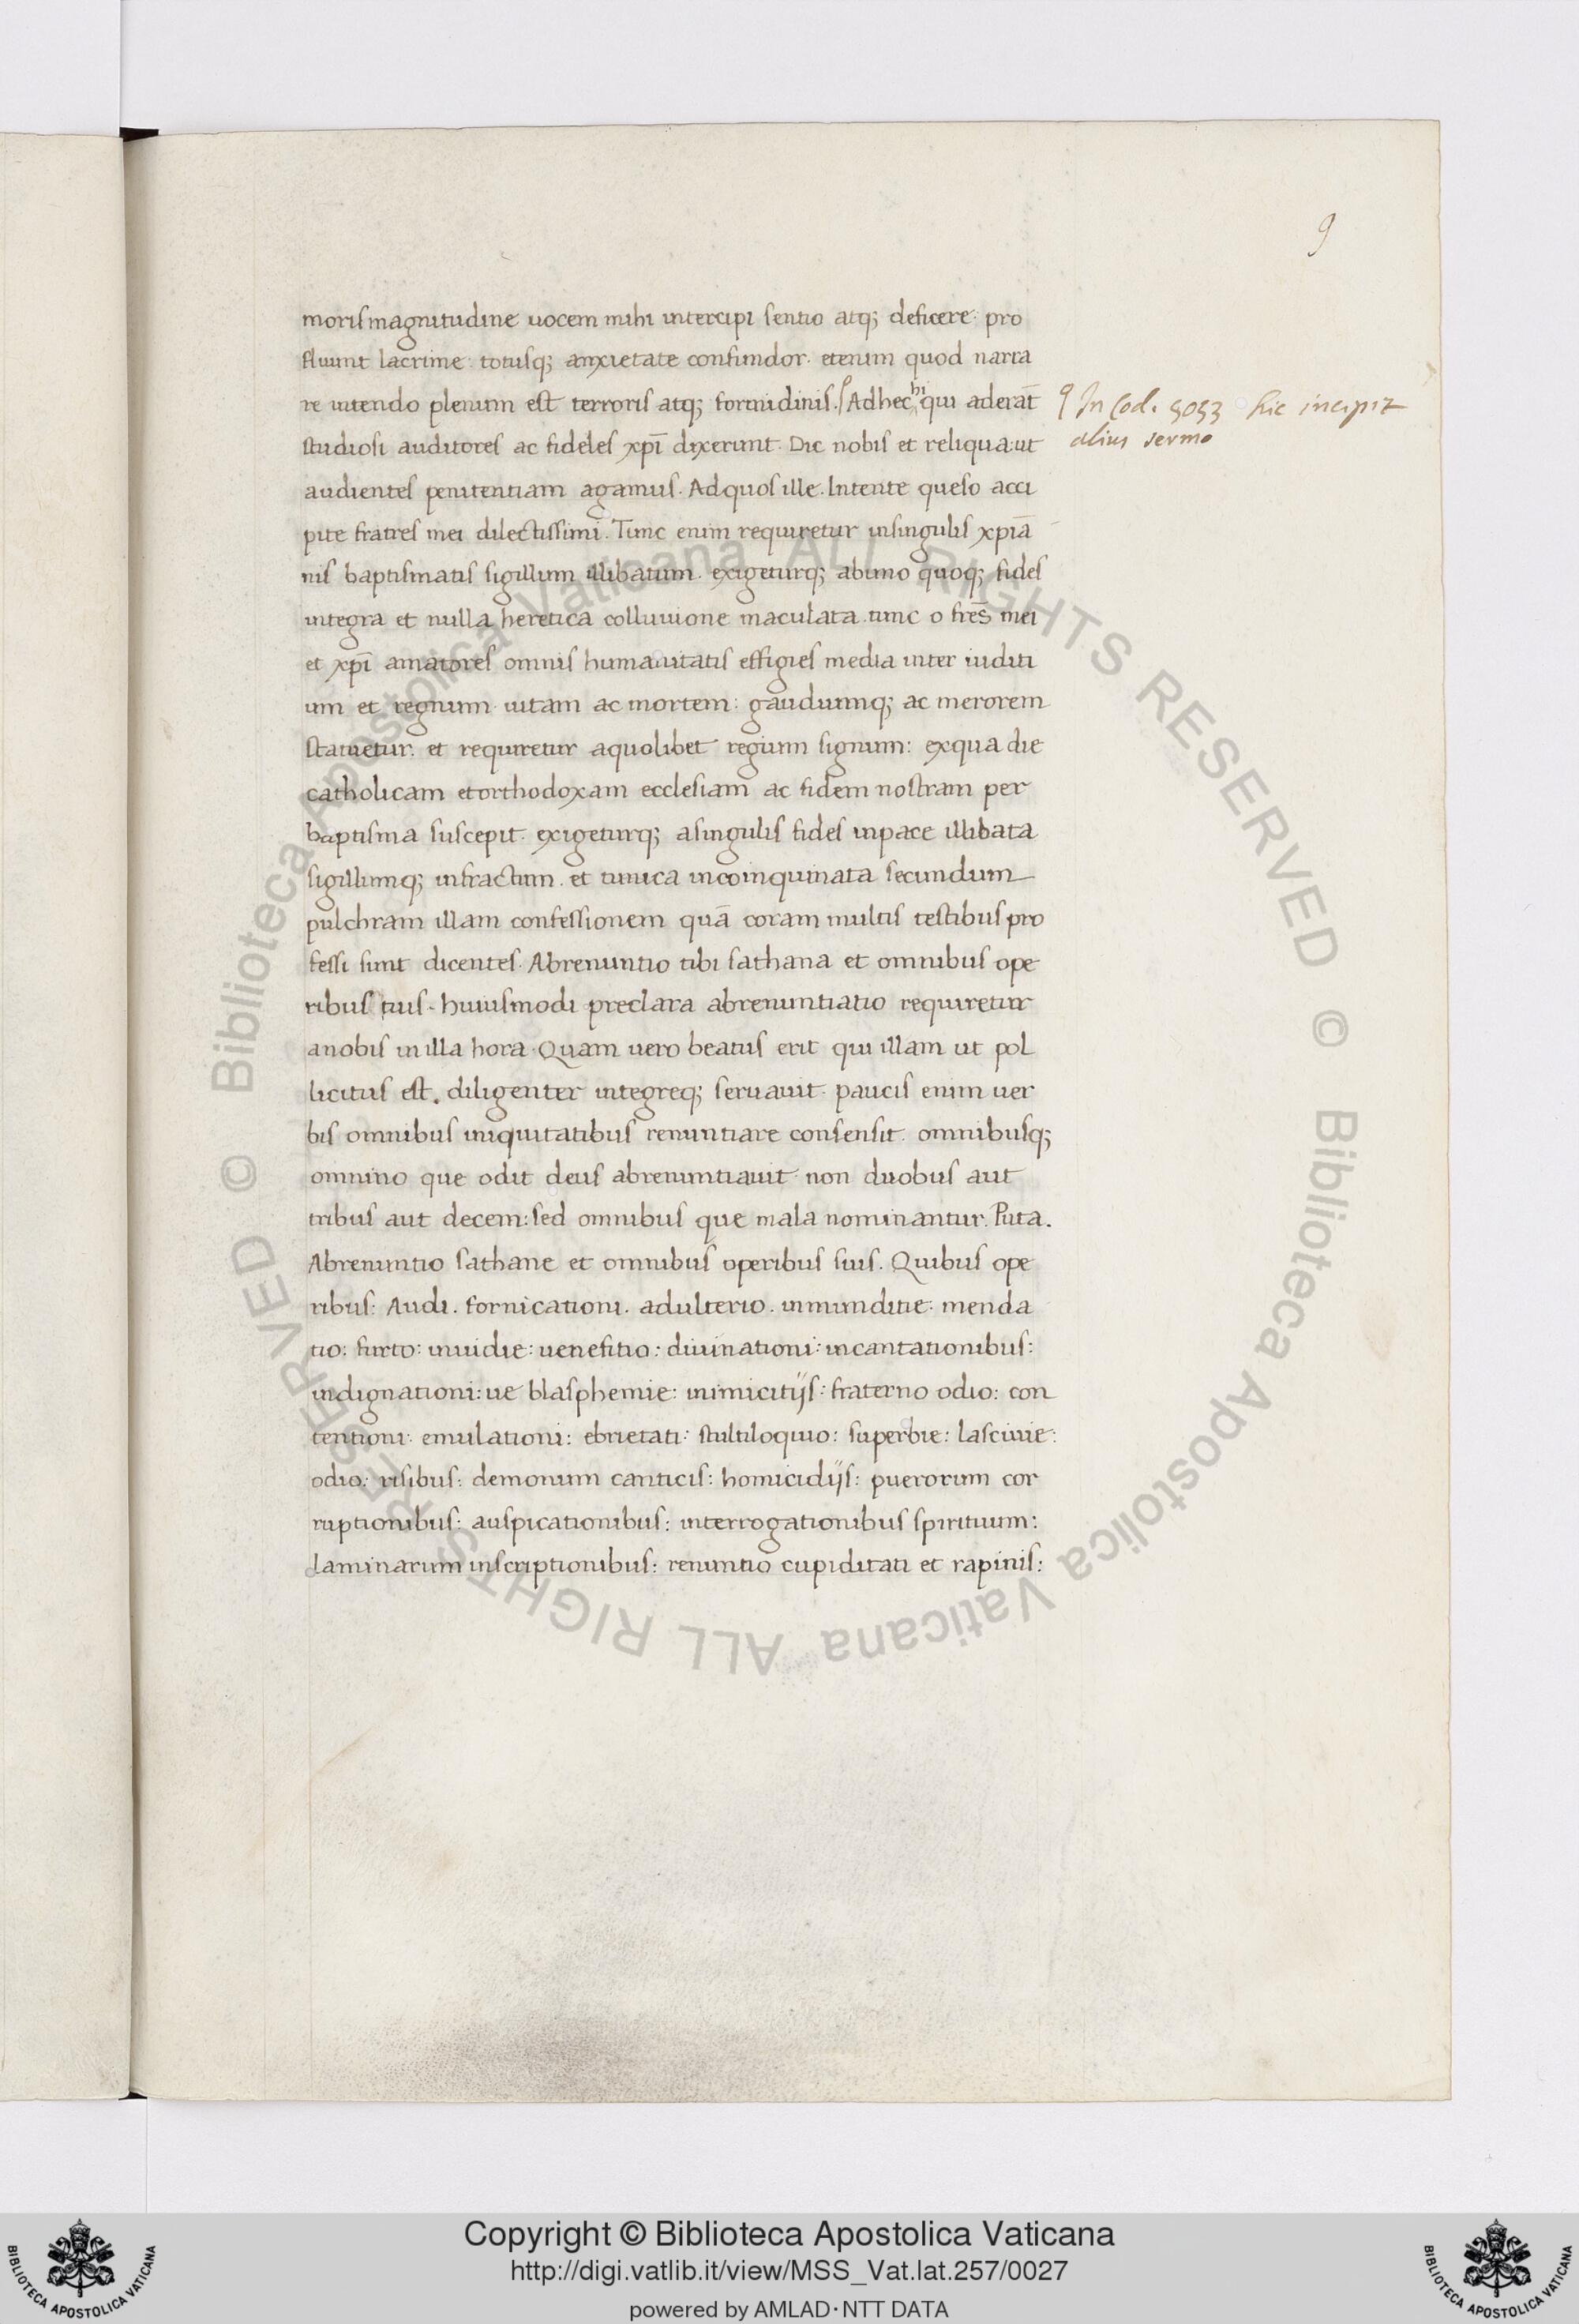 9
moris magnitudine uocem mihi intercipi sentio atq; deficere· pro
fluunt lacrime· totusq; anxietate confundor· etenim quod narra
re intendo plenum est terroris atq; formidinis. Adhec hi qui aderāt
studiosi auditores ac fideles xp̄i dixerunt. Dic nobis et reliqua: ut
audientes penitentiam agamus. Ad quos ille. Intente queso acci
pite fratres mei dilectissimi. Tunc enim requiretur insingulis xpiā
nis baptismatis sigillum illibatum. exigeturq; abimo quoq; fides
integra et nulla heretica colluuione maculata. tunc o frēs mei
et xp̄i amatores omnis humanitatis effigies media inter iuditi
um et regnum· uitam ac mortem: gaudiumq; ac merorem
statuetur. et requiretur aquolibet regium signum: exqua die
catholicam et orthodoxam ecclesiam ac fidem nostram per
baptisma suscepit. exigeturq; asingulis fides inpace illibata
sigillumq; infractum. et tunica incoinquinata secundum
pulchram illam confessionem quā coram multis testibus pro
fessi sunt dicentes. Abrenuntio tibi sathana et omnibus ope
ribus tuis· huiusmodi preclara abrenuntiatio requiretur
anobis in illa hora· Quam uero beatus erit qui illam ut pol
licitus est. diligenter integreq; seruauit· paucis enim uer
bis omnibus iniquitatibus renuntiare consensit. omnibusq;
omnino que odit deus abrenuntiauit· non duobus aut
tribus aut decem: sed omnibus que mala nominantur. Puta.
Abrenuntio sathane et omnibus operibus suis. Quibus ope
ribus: Audi. fornicationi. adulterio. inmunditie: menda
tio: furto: inuidie: uenefitio: diuinationi: incantationibus:
indignationi: ue blasphemie: inimicitijs: fraterno odio: con
tentioni· emulationi: ebrietati: stultiloquio: superbie: lasciuie:
odio: risibus: demonum canticis: homicidijs: puerorum cor
ruptionibus: auspicationibus: interrogationibus spirituum:
laminarum inscriptionibus: renuntio cupiditati et rapinis:
In Cod. 5053 hic incipit
alius sermo
© Biblioteca Apostolica Vaticana ALL RIGHTS RESERVED
© Biblioteca Apostolica Vaticana ALL RIGHTS RESERVED
BIBLIOTECA APOSTOLICA VATICANA
Copyright © Biblioteca Apostolica Vaticana
http://digi.vatlib.it/view/MSS_Vat.lat.257/0027
powered by AMLAD·NTT DATA
BIBLIOTECA APOSTOLICA VATICANA